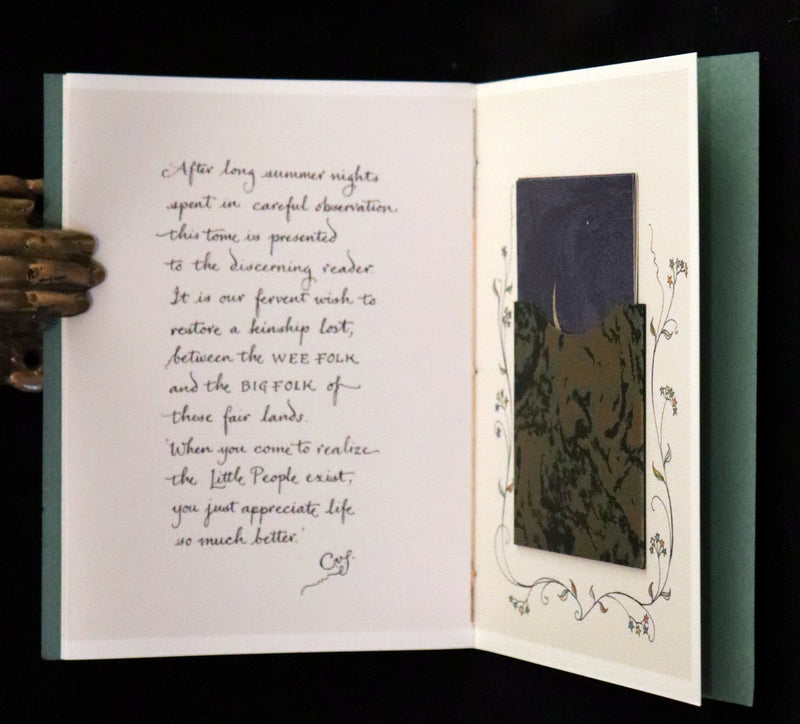 After long summer nights
spent in careful observation
this tome is presented
to the discerning reader.
It is our fervent wish to
restore a kinship lost,
between the WEE FOLK
and the BIG FOLK of
these fair lands.
'When you come to realize
the Little People exist,
you just appreciate life
so much better.'